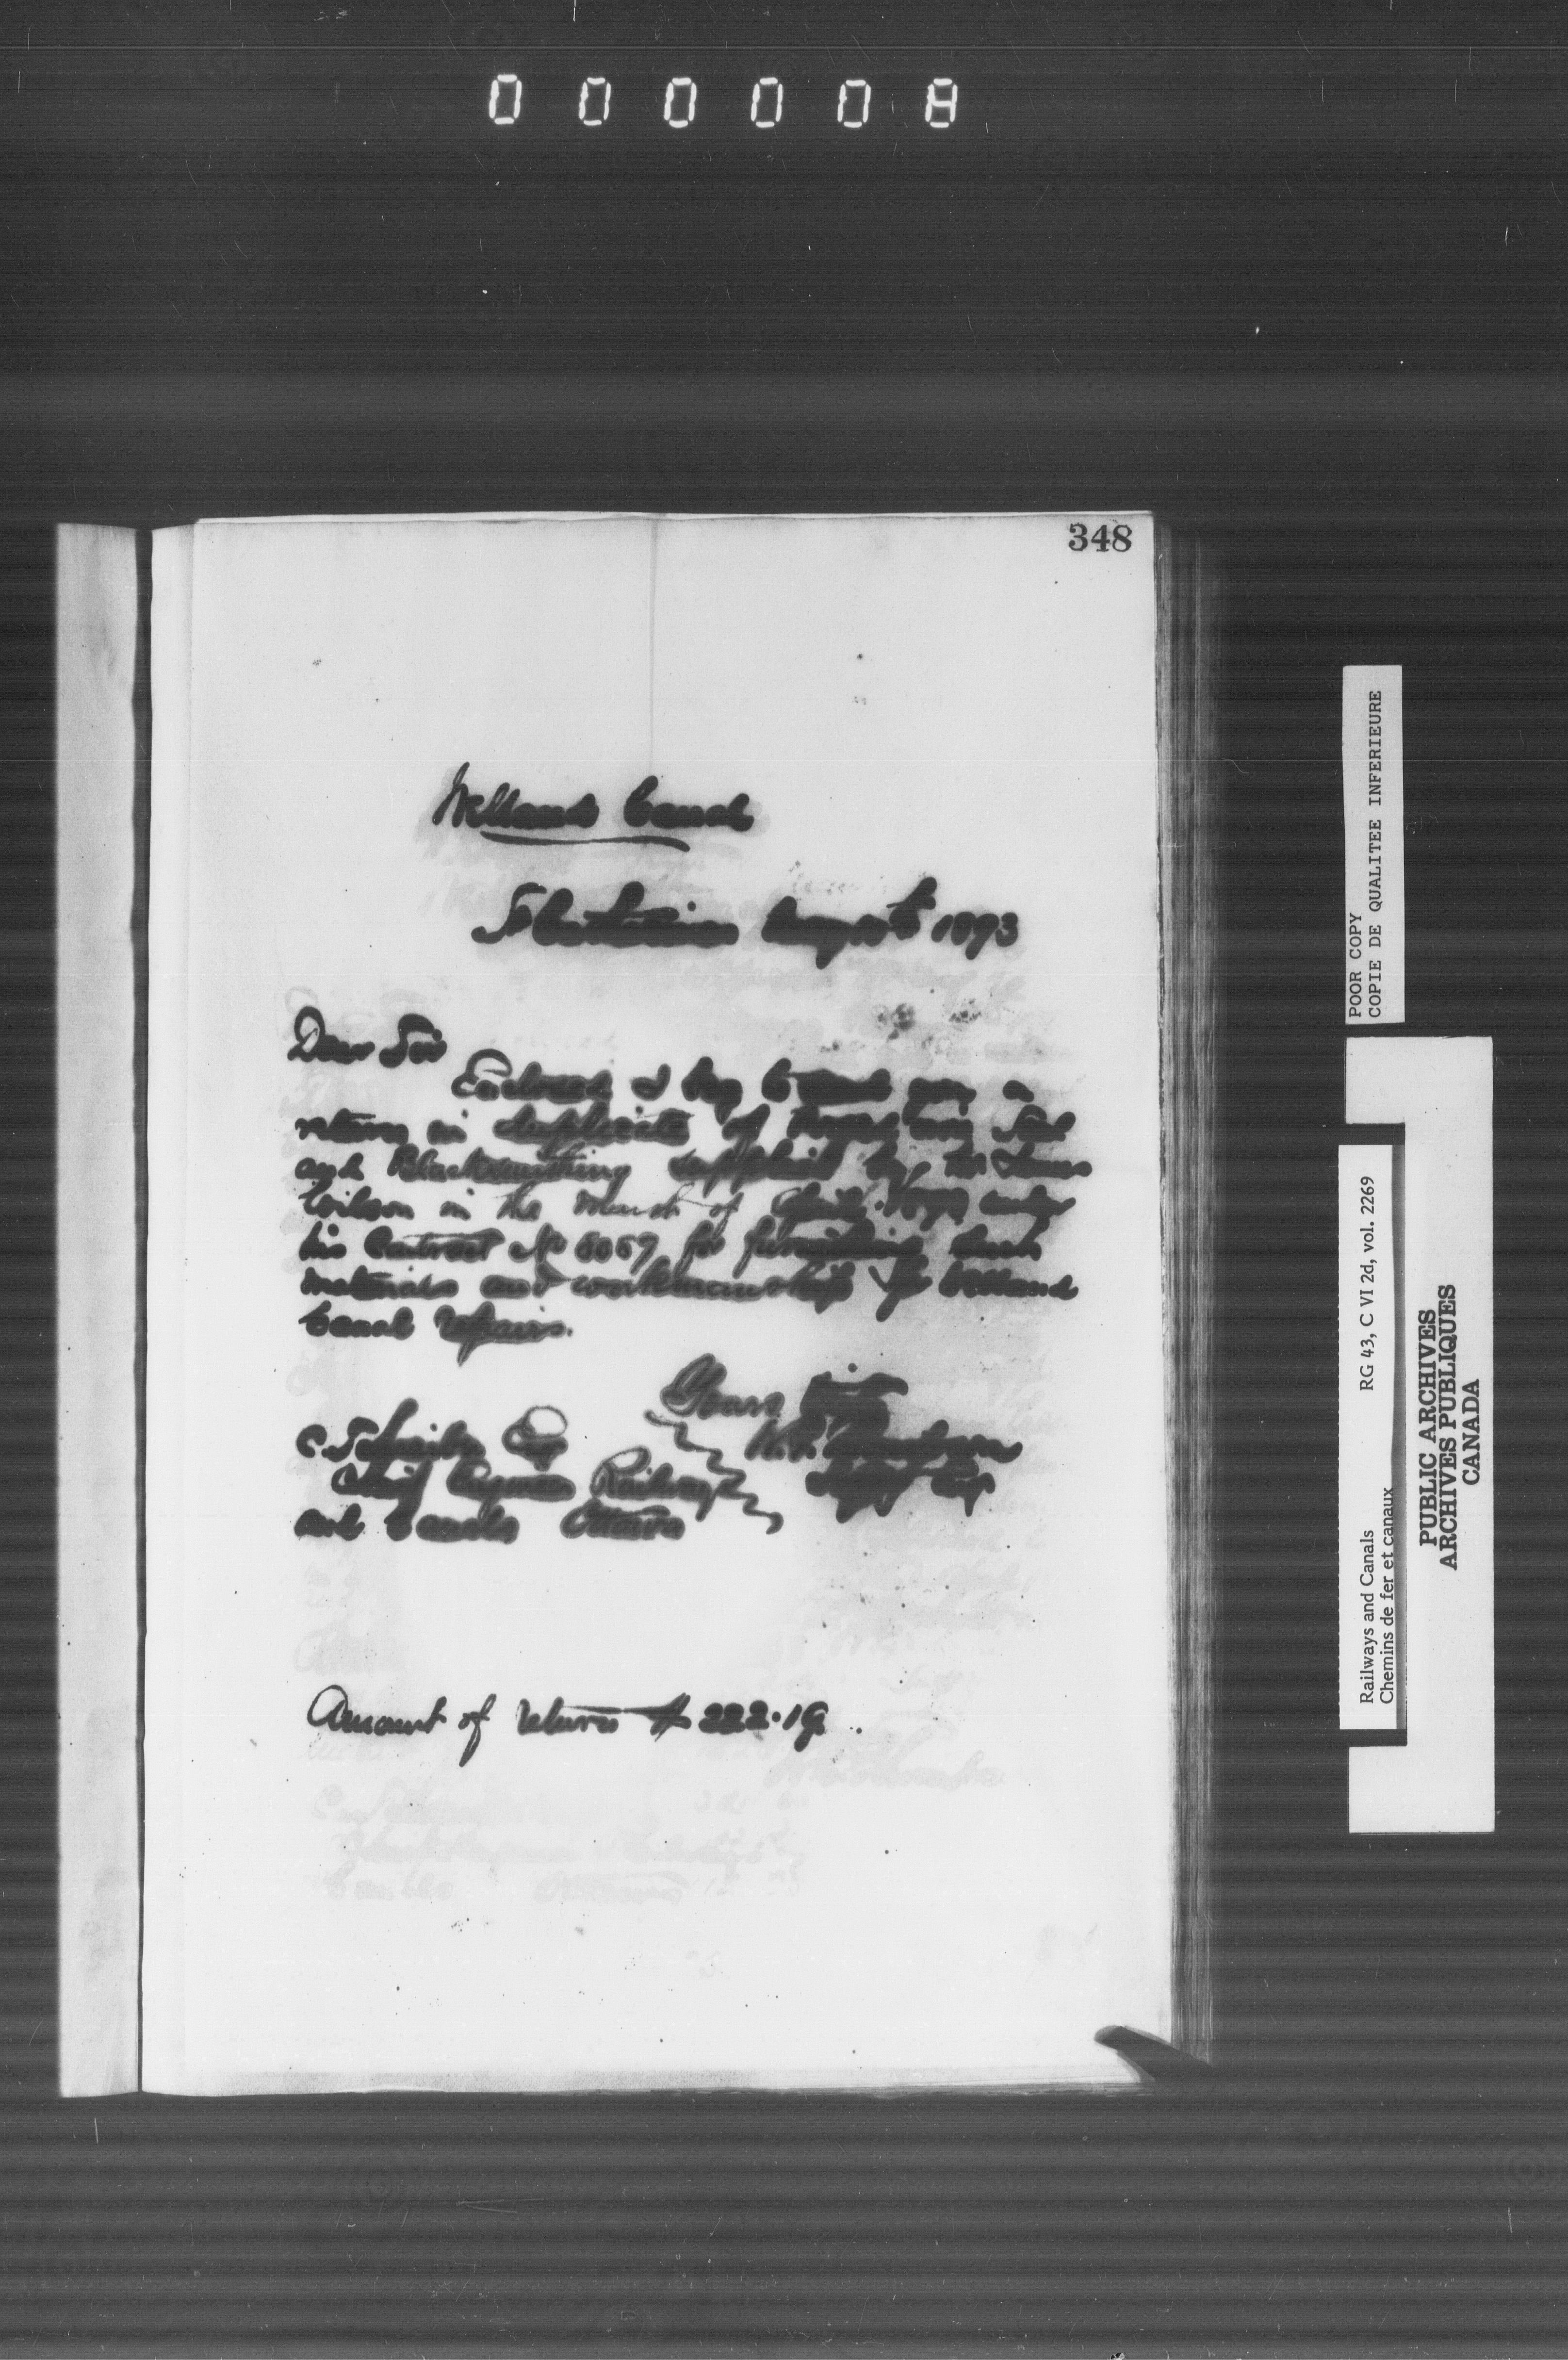 000008
348
Welland Canal
St Catharines 1893
Dear Sir
Enclosed I beg to send you a
return in duplicate of Iron Steel
and Blacksmithing supplied by Mr James
Wilson in the Month of April 1893 under
his Contract No for furnishing such
materials and workmanship for Welland
Canal Repairs.
Yours truly
C Schreiber Esq W.G. Thompson
Chief Engineer Railways
and Canals Ottawa
Amount of return $222.19
POOR COPY
COPIE DE QUALITEE INFERIEURE
Railways and Canals RG 43, C VI 2d, vol. 2269
Chemins de fer et canaux
PUBLIC ARCHIVES
ARCHIVES PUBLIQUES
CANADA